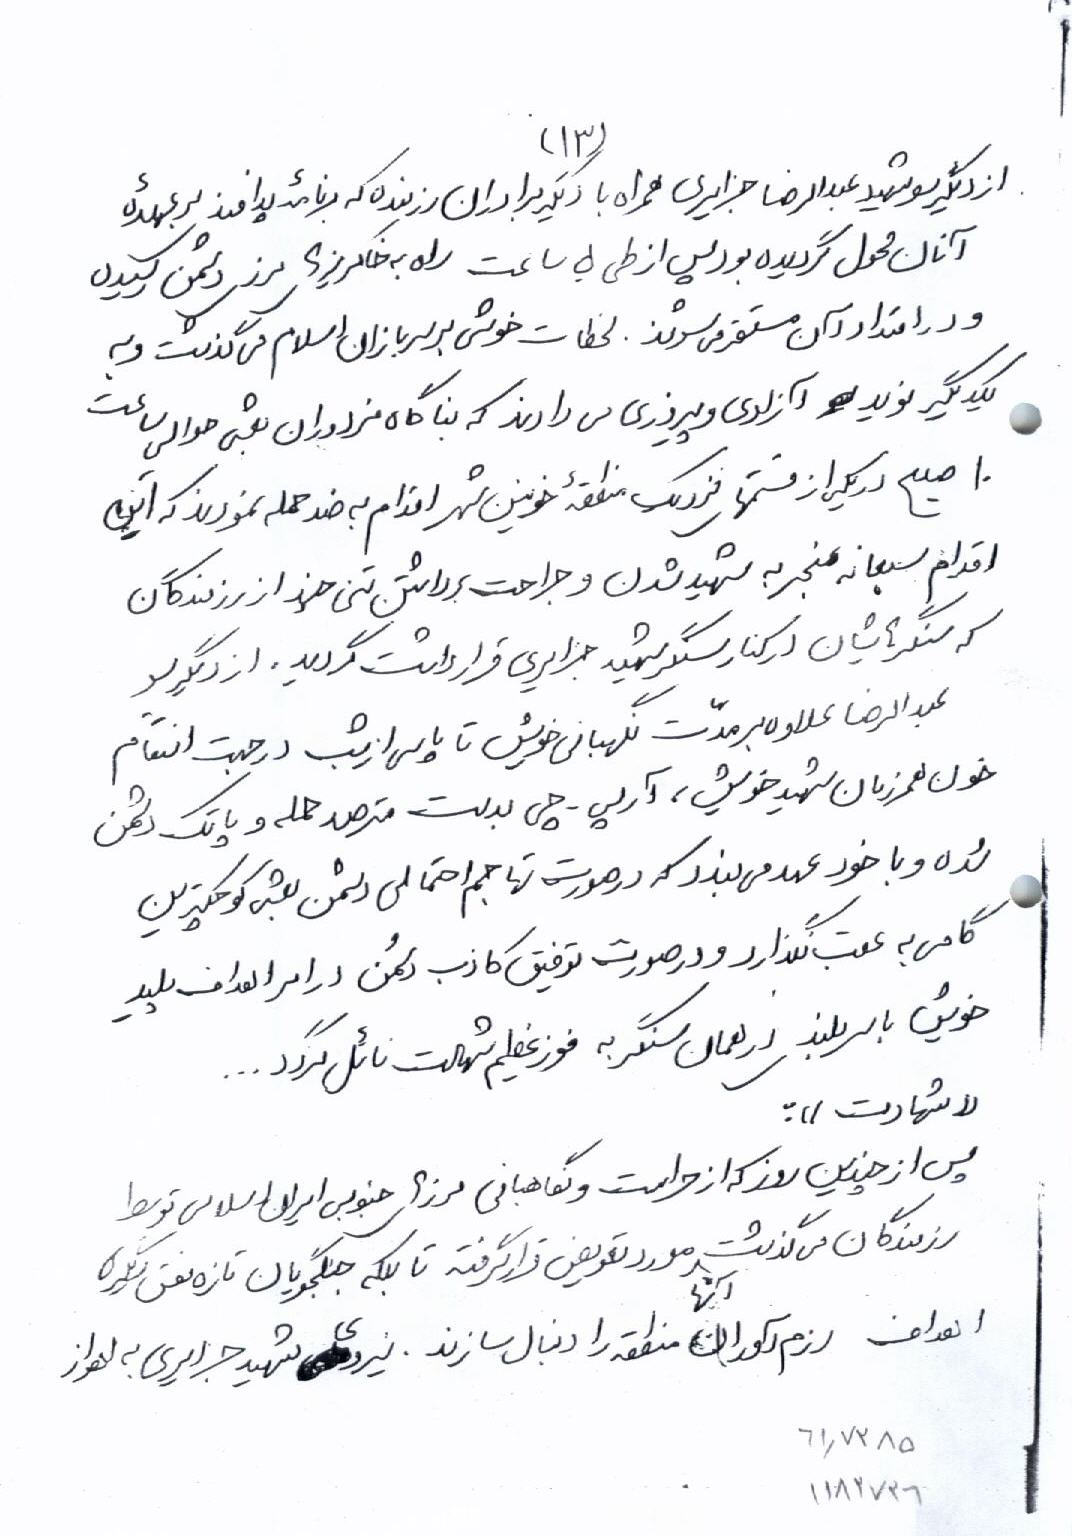 (۱۳)
از دیگر سو شهید عبدالرضا جزایری همراه با دیگر برادران رزمنده که برنامهٔ پدافند بر عهدهٔ
آنان محول گردیده بود پس از طی ۵ ساعت راه به خاکریزهای مرزی دشمن رسیده
و در امتداد آن مستقر می‌شوند. لحظات خوشی بر سربازان اسلام می‌گذشت و به
یکدیگر نوید آزادی و پیروزی می دادند که بناگاه مزدوران بعثی حوالی ساعت
۱۰ صبح در یکی از قسمتهای نزدیک منطقهٔ خونین شهر اقدام به ضد حمله نمودند که این
اقدام سبعانه منجر به شهید شدن و جراحت برداشتن تنی چند از رزمندگان
که سنگرهایشان در کنار سنگر شهید جزایری قرار داشت گردید. از دیگر سو
عبدالرضا علاوه بر مدّت نگهبانی خویش تا پاسی از شب در جهت انتقام
خون همرزمان شهید خویش، آر پی - جی بدست مترصد حمله و پاتک دشمن
شده و با خود عهد می بندد که در صورت تهاجم احتمالی دشمن بعثی کوچکترین
گامی به عقب نگذارد و در صورت توفیق کاذب دشمن در امر اهداف پلید
خویش با سربلندی در همان سنگر به فوز عظیم شهادت نائل گردد ...
« شهادت »:
پس از چندین روز که از حراست و نگاهبانی مرزهای جنوبی ایران اسلامی توسط
رزمندگان می‌گذشت مورد تعویض قرار گرفته تا بلکه جنگجویان تازه نفس دیگری
آنها
اهداف رزم آوران منطقه را دنبال سازند. نیروهای شهید جزایری به اهواز
۶۱٫۷۲۸۵
۱۱۸۲۷۲۶